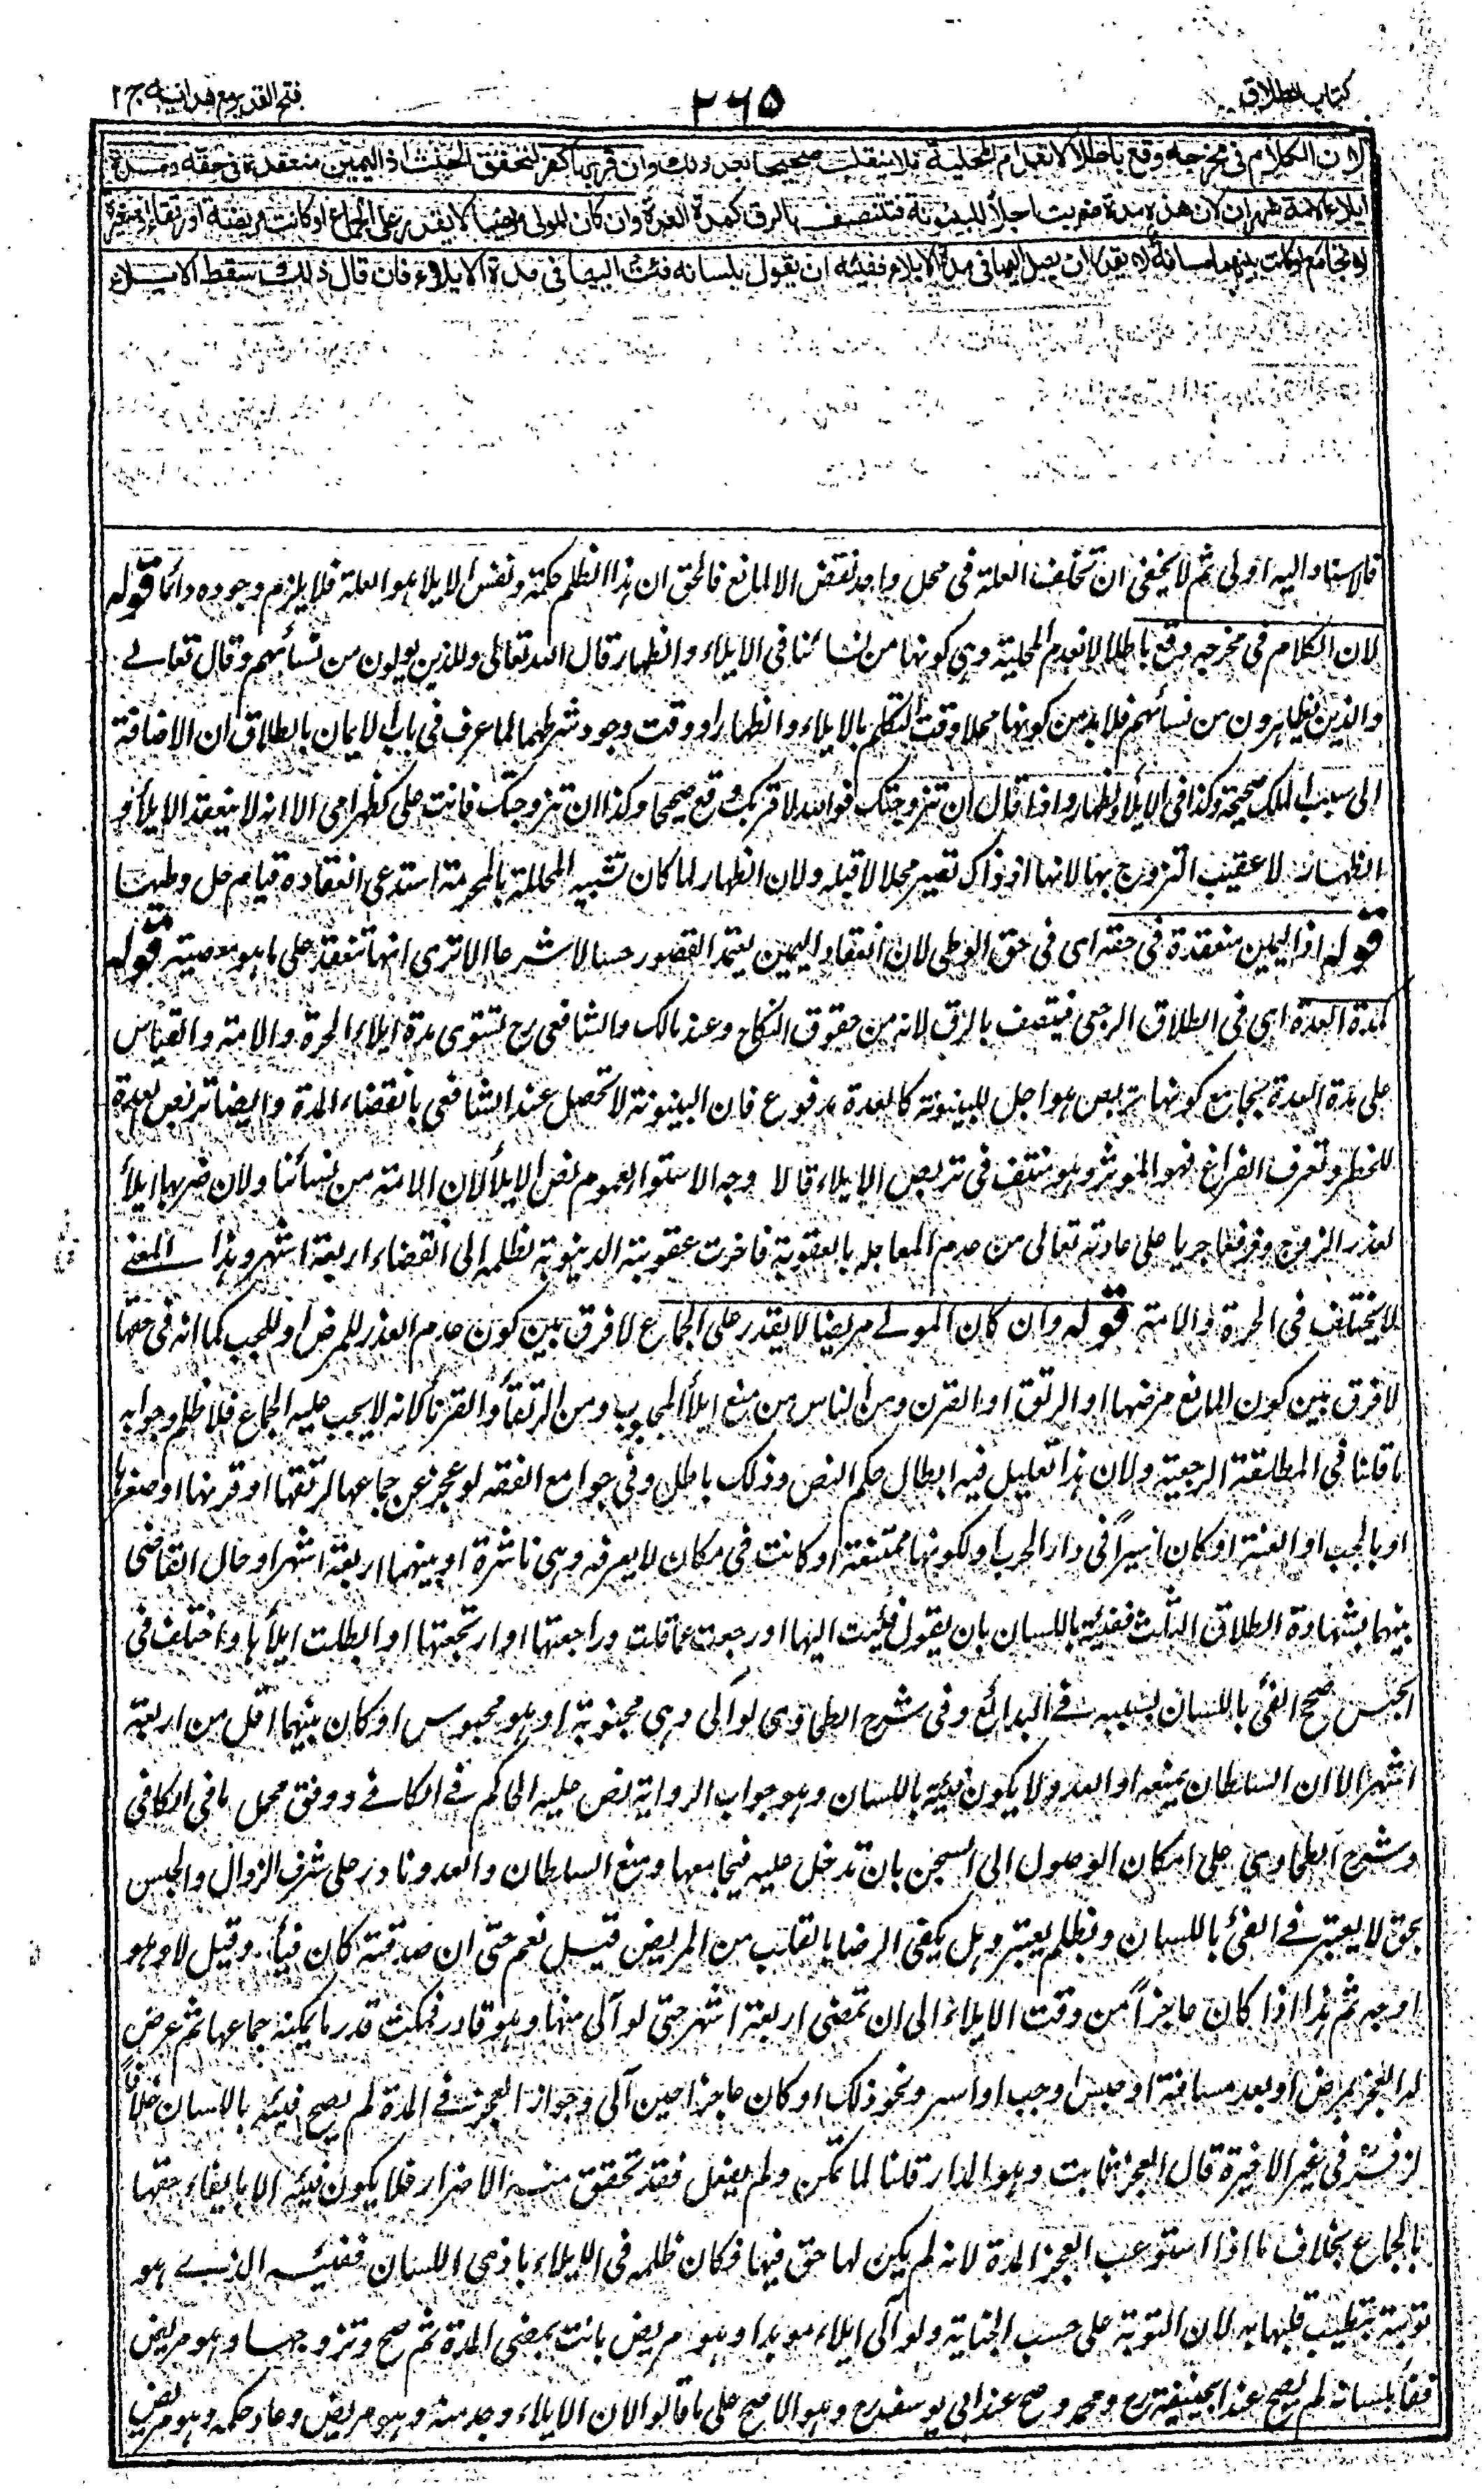 كتاب الطلاق
٢٦٥
فتح القدير مع هدايه ج ٢
لان الكلام فى مخرجه وقع باطلا لانعدام المحلية فلا ينقلب صحيحا بعد ذلك وان قربها كفر لتحقق الحنث اذ اليمين منعقدة فى حقه ومدة
ايلاء الامة شهران لان هذه مدة ضربت اجلا للبينونة فتنتصف بالرق كمدة العدة وان كان المولى مريضا لا يقدر على الجماع او كانت مريضة او رتقاء او صغيرة
لا تجامع او كانت بينهما مسافة لا يقدر ان يصل اليها فى مدة الايلاء ففيئه ان يقول بلسانه فئت اليها فى مدة الايلاء فان قال ذلك سقط الايلاء
فالاسناد اليه اولى ثم لا يخفى ان تخلف العلة فى محل واحد نقض الا لمانع فالحق ان هذا الظلم حكمة ونفس الايلاء هو العلة فلا يلزم وجوده دائما قوله
لان الكلام فى مخرجه وقع باطلا لانعدم المحلية وهى كونها من نسائنا فى الايلاء والظهار قال الله تعالى وللذين يولون من نسائهم وقال تعالے
والذين يظاهرون من نسائهم فلا بد من كونها محلا وقت التكلم بالايلاء والظهار او وقت وجود شرطهما لما عرف فى باب الايمان بالطلاق ان الاضافة
الى سبب الملك صحيحة وكذا فى الايلاء والظهار واذا قال ان تزوجتك فوالله لا قربتك وقع صحيحا وكذا ان تزوجتك فانت على كظهر امى الا انه لا ينعقد الايلاء و
الظهار لا عقيب التزوج بها لانها اذ ذاك تصير محلا لا قبله ولان الظهار لما كان تشبيه المحللة بالمحرمة استدعى انعقاده قيام حل وطيها
قوله اذ اليمين منعقدة فى حقه اى فى حق الوطى لان انعقاد اليمين يعتمد القصور حسا لا شرعا الا ترى انها تنعقد على ما هو معصية قوله
كمدة العدة اى فى الطلاق الرجعى فيتنصف بالرق لانه من حقوق النكاح وعند مالك والشافعى رح تستوى مدة ايلاء الحرة والامة والقياس
على مدة العدة بجامع كونها تربص هو اجل للبينونة كالعدة مدفوع فان البينونة لا تحصل عند الشافعى بانقضاء المدة وايضا تربص العدة
للخطر وتعرف الفراغ فهو المؤثر وهو منتف فى تربص الايلاء قالا وجه الاستواء عموم نص الايلاء لان الامة من نسائنا ولان ضربها ابلاء
لعذر الزوج وفرقها جريا على عادته تعالى من عدم المعاجله بالعقوبة فاخرت عقوبته الدنيوية لظلمه الى انقضاء اربعة اشهر وهذا المعنے
لا يختلف فى الحرة والامة قوله وان كان المولے مريضا لا يقدر على الجماع لا فرق بين كون عدم العذر للمرض او للجب كما انه فى حقها
لا فرق بين كون المانع مرضها او الرتق او القرن ومن الناس من منع ايلاء المجبوب ومن الرتقاء والقرناء لانه لا يجب عليه الجماع فلا ظلم وجوابه
ما قلنا فى المطلقة الرجعية ولان هذا تعليل فيه ابطال حكم النص وذلك باطل وفى جوامع الفقه لو عجز عن جماعها لرتقها او قرنها او صغرها
او بالجب او العنة او كان اسيراً فى دار الحرب او لكونها ممتنعة او كانت فى مكان لا يعرفه وهى ناشزة او بينهما اربعة اشهر او حال القاضى
بينهما بشهادة الطلاق الثلث ففيئه باللسان بان يقول فئت اليها او رجعت عما قلت وراجعتها او ارتجعتها او ابطلت ايلاءها واختلف فى
الحبس صحح الفئ باللسان بسببه فے البدائع وفى شرح الطحاوى لو آلى وهى مجنونة او هو محبوس او كان بينهما اقل من اربعة
اشهر الا ان السلطان يمنعه او العدو لا يكون فيئه باللسان وهو جواب الرواية نص عليه الحاكم فے الكافے ووفق بحمل ما فى الكافى
وشرح الطحاوى على امكان الوصول الى السجن بان تدخل عليه فيجامعها ومنع السلطان والعدو نادر على شرف الزوال والحبس
بحق لا يعتبر فے الفئ باللسان وبظلم يعتبر وهل يكفى الرضا بالقلب من المريض قيل نعم حتى ان صدقته كان فيأ وقيل لا وهو
اوجه ثم هذا اذا كان عاجزاً من وقت الايلاء الى ان تمضى اربعة اشهر حتى لو آلى منها وهو قادر فمكث قدر ما يمكنه جماعها ثم عرض
له العجز بمرض او بعد مسافة او حبس او جب او اسر ونحو ذلك او كان عاجزا حين آلى وجواز العجز فے المدة لم يصح فيئه باللسان خلافاً
لزفر فى غير الاخيرة قال العجز ثابت وهو المدار قلنا لما تمكن ولم يفعل فقد تحقق منه الاضرار فلا يكون فيئه الا بايفاء حقها
بالجماع بخلاف ما اذا استوعب العجز المدة لانه لم يكن لها حق فيها فكان ظلمه فى الايلاء باذى اللسان ففيئه الذے هو
توبته بتطييب قلبها به لان التوبة على حسب الجناية ولو آلى ايلاء موبدا وهو مريض بانت بمضى المدة ثم صح وتزوجها وهو مريض
ففاء بلسانه لم يصح عند ابيحنيفة رح ومحمد وصح عند ابى يوسف رح وهو الاصح على ما قالوا لان الايلاء وجد منه وهو مريض وعاد حكمه وهو مريض